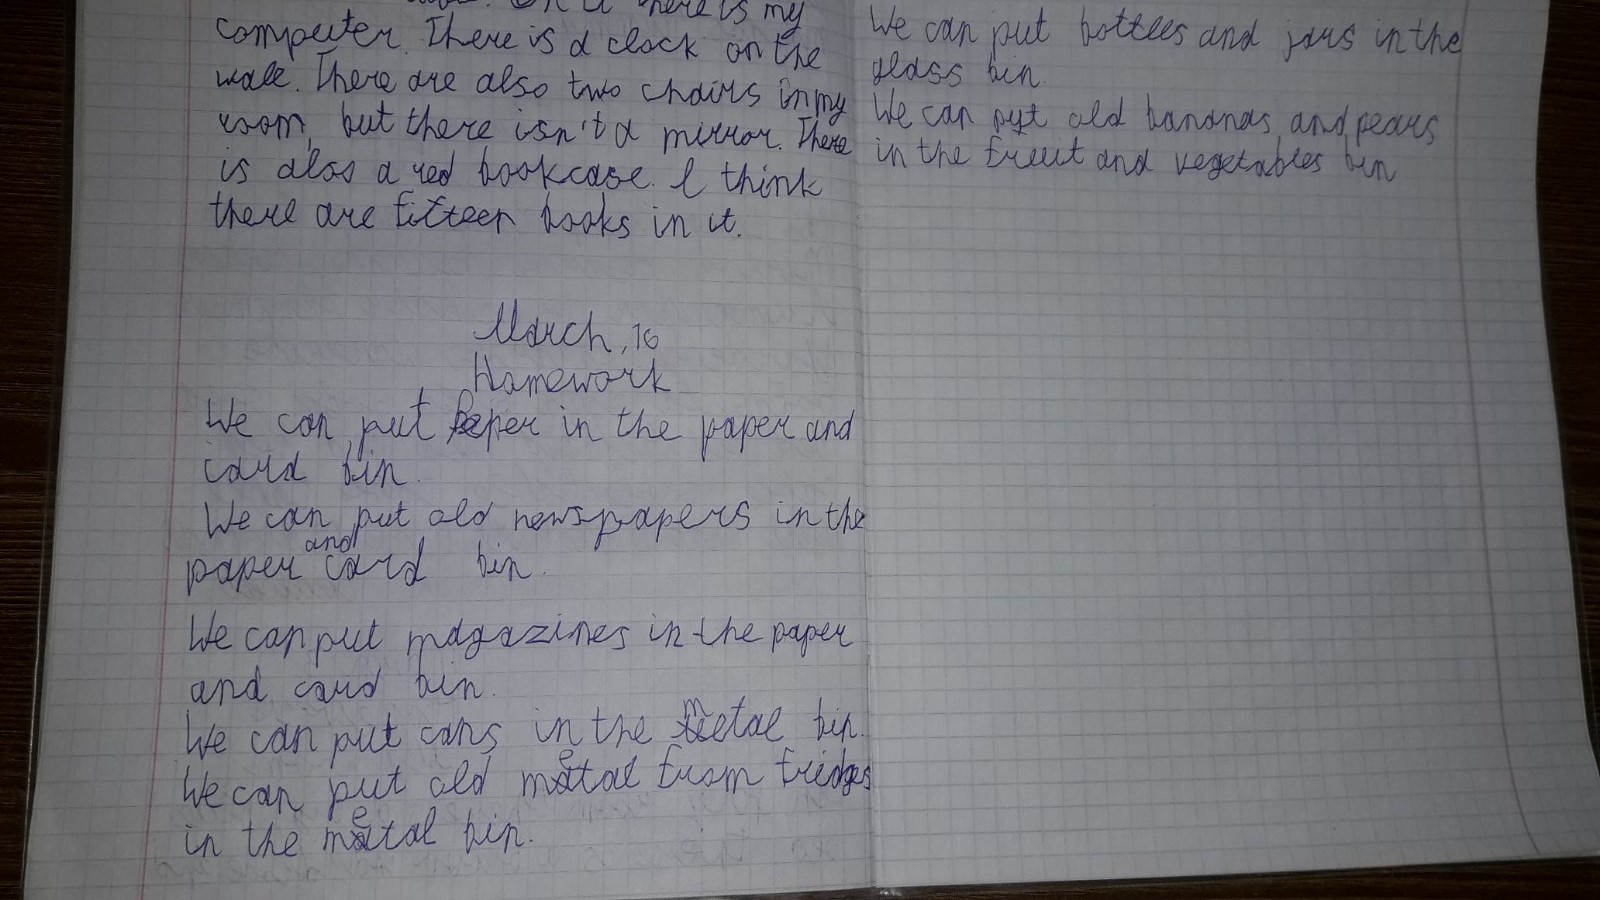 there is my
computer. There is a clock on the
wall. There are also two chairs in my
room, but there isn't a mirror. There
is also a red bookcase. I think
there are fifteen books in it.
March, 16
Homework
We can put paper in the paper and
card bin.
We can put old newspapers in the
paper and card bin.
We can put magazines in the paper
and card bin.
We can put cans in the metal bin.
We can put old metal from fridges
in the metal bin.
We can put bottles and jars in the
glass bin.
We can put old bananas and pears
in the fruit and vegetables bin